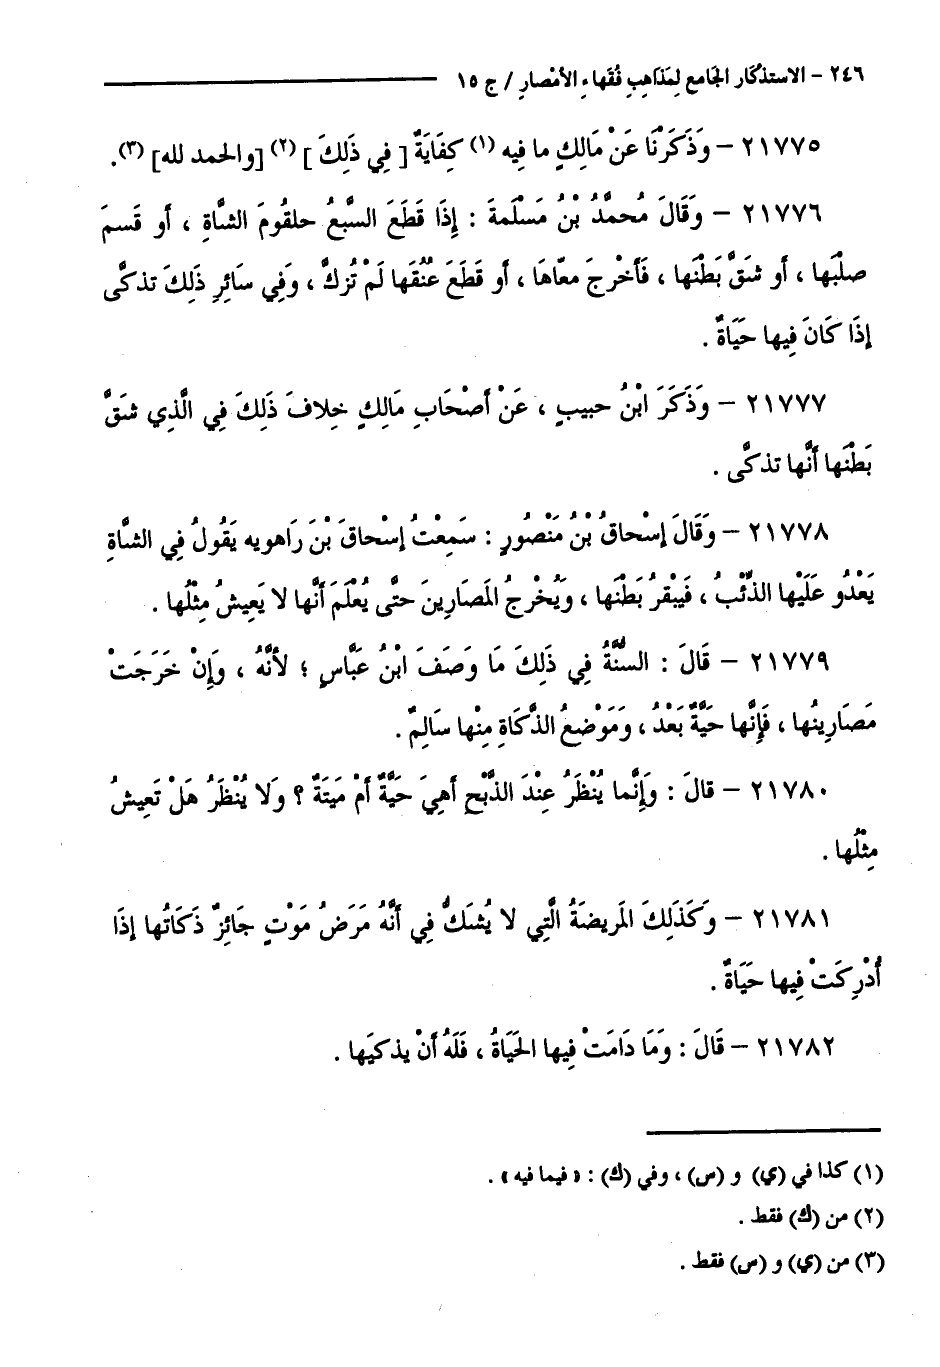 ٢٤٦ – الاستذكار الجامع لِمَذَاهِبِ فُقَهاءِ الأمْصارِ / ج ١٥
٢١٧٧٥ – وَذَكَرْنَا عَنْ مَالِكٍ ما فِيه (١) كِفَايَةٌ [ فِي ذَلِكَ ] (٢) [والحمد لله] (٣).
٢١٧٧٦ – وَقَالَ مُحمَّدُ بْنُ مَسْلَمةَ : إِذَا قَطَعَ السَّبعُ حلقُومَ الشَّاةِ ، أو قَسمَ
صلْبَها ، أو شَقَّ بَطْنَها ، فَأخْرجَ معَّاهَا ، أو قَطَعَ عُنُقَها لَمْ تُزكَّ ، وَفِي سَائِرِ ذَلِكَ تذكَّى
إذَا كَانَ فِيها حَيَاةٌ .
٢١٧٧٧ – وَذَكَرَ ابْنُ حبيبٍ ، عَنْ أصْحَابِ مَالِكٍ خِلافَ ذَلِكَ فِي الَّذِي شَقَّ
بَطْنَها أَنَّها تذكَّى .
٢١٧٧٨ – وَقَالَ إسْحاقُ بْنُ مَنْصُورٍ : سَمِعْتُ إسْحاقَ بْنَ رَاهويه يَقُولُ فِي الشَّاةِ
يَعْدُو عَلَيْها الذِّئْبُ ، فَيبْقرُ بَطْنَها ، وَيُخْرِجُ المَصَارِينَ حتَّى يُعْلَمَ أَنَّها لا يَعِيشُ مِثْلُها .
٢١٧٧٩ – قَالَ : السُّنَّةُ فِي ذَلِكَ مَا وَصَفَ ابْنُ عَبَّاسٍ ؛ لأنَّهُ ، وَإِنْ خَرَجَتْ
مَصَارِينُها ، فَإِنَّها حَيَّةٌ بَعْدُ ، وَمَوْضعُ الذَّكَاةِ مِنْها سَالِمٌ .
٢١٧٨٠ – قالَ : وَإِنَّما يُنْظَرُ عِنْدَ الذَّبْحِ أَهِيَ حَيَّةٌ أمْ مَيتَةٌ ؟ وَلا يُنْظَرُ هَلْ تَعِيشُ
مِثْلُها .
٢١٧٨١ – وَكَذَلِكَ المَرِيضَةُ الَّتِي لا يُشَكُّ فِي أَنَّهُ مَرَضُ مَوْتٍ جَائِزٌ ذَكَاتُها إذَا
أُدْرِكَتْ فِيها حَيَاةٌ .
٢١٧٨٢ – قَالَ : وَمَا دَامَتْ فِيها الحَيَاةُ ، فَلَهُ أنْ يذكيَها .
(١) كذا في (ي) و (س) ، وفي (ك) : « فيما فيه » .
(٢) من (ك) فقط .
(٣) من (ي) و (س) فقط .